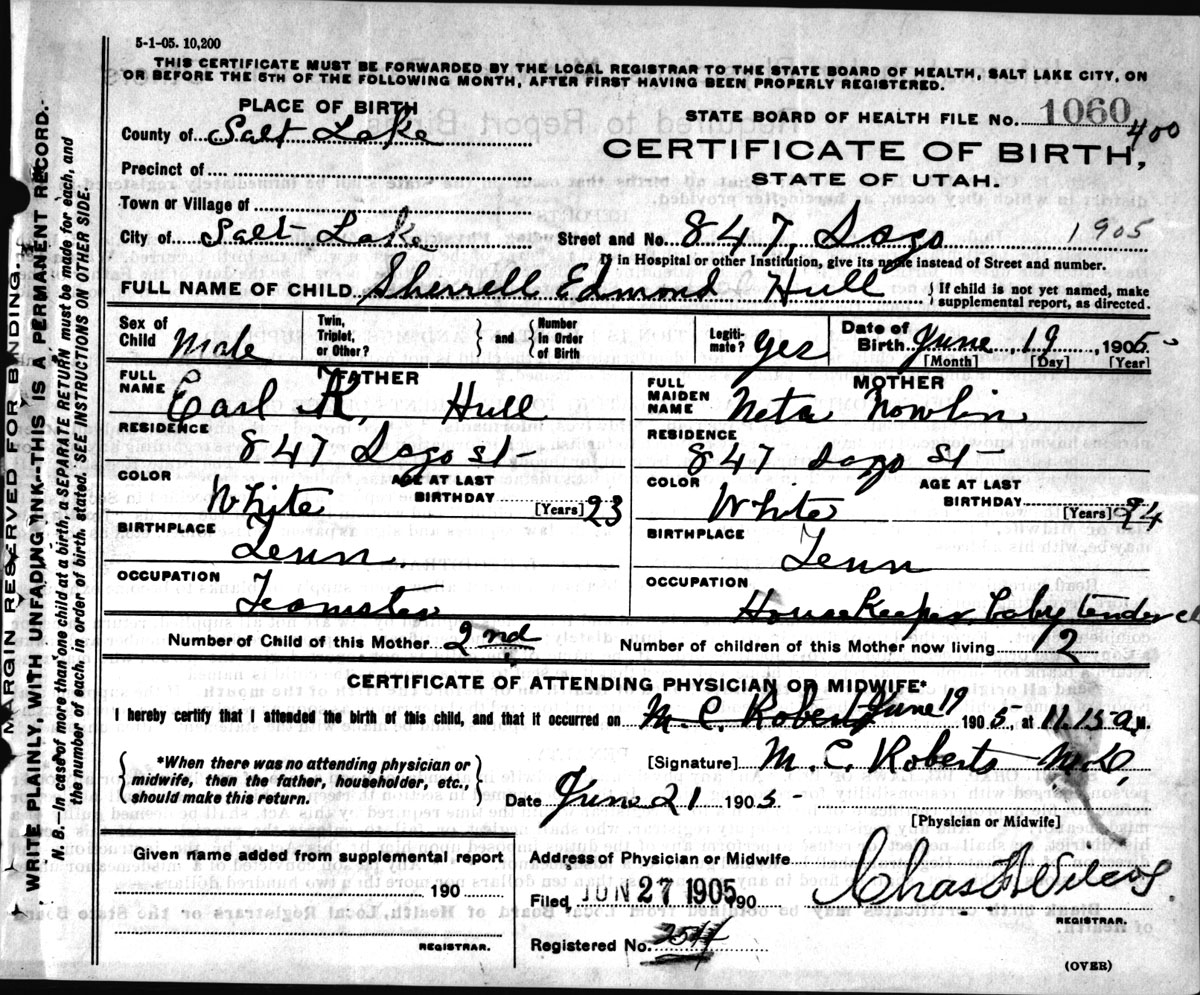 5-1-05. 10,200
THIS CERTIFICATE MUST BE FORWARDED BY THE LOCAL REGISTRAR TO THE STATE BOARD OF HEALTH, SALT LAKE CITY, ON
OR BEFORE THE 5TH OF THE FOLLOWING MONTH, AFTER FIRST HAVING BEEN PROPERLY REGISTERED.
PLACE OF BIRTH
STATE BOARD OF HEALTH FILE No. 1060
400
County of Salt Lake
CERTIFICATE OF BIRTH,
Precinct of
STATE OF UTAH.
Town or Village of
City of Salt Lake Street and No. 847, Sago 1905
If in Hospital or other Institution, give its name instead of Street and number.
FULL NAME OF CHILD Sherrell Edmond Hull { If child is not yet named, make supplemental report, as directed.
Sex of Child Male Twin, Triplet, or Other? } and { Number in Order of Birth Legiti- mate? yes Date of Birth June, 19, 1905
[Month] [Day] [Year]
FATHER
FULL NAME Earl K. Hull
RESIDENCE
847 Sago st
COLOR White AGE AT LAST BIRTHDAY [Years] 23
BIRTHPLACE
Tenn.
OCCUPATION
Teamster
MOTHER
FULL MAIDEN NAME Neta Nowlin
RESIDENCE
847 Sago st
COLOR White AGE AT LAST BIRTHDAY [Years]
BIRTHPLACE
Tenn
OCCUPATION
Housekeeper
Number of Child of this Mother 2nd Number of children of this Mother now living 2
CERTIFICATE OF ATTENDING PHYSICIAN OR MIDWIFE*
I hereby certify that I attended the birth of this child, and that it occurred on M. C. Roberts June 19 1905 at 11.15 a M.
{ *When there was no attending physician or midwife, then the father, householder, etc., should make this return. }
[Signature] M. C. Roberts
Date June 21 1905
[Physician or Midwife]
Given name added from supplemental report
190
REGISTRAR.
Address of Physician or Midwife
Filed JUN 27 1905 190
Chas
REGISTRAR.
Registered No.
(OVER)
MARGIN RESERVED FOR BINDING.
WRITE PLAINLY, WITH UNFADING INK--THIS IS A PERMANENT RECORD.
N. B.--In case of more than one child at a birth, a SEPARATE RETURN must be made for each, and
the number of each, in order of birth, stated. SEE INSTRUCTIONS ON OTHER SIDE.